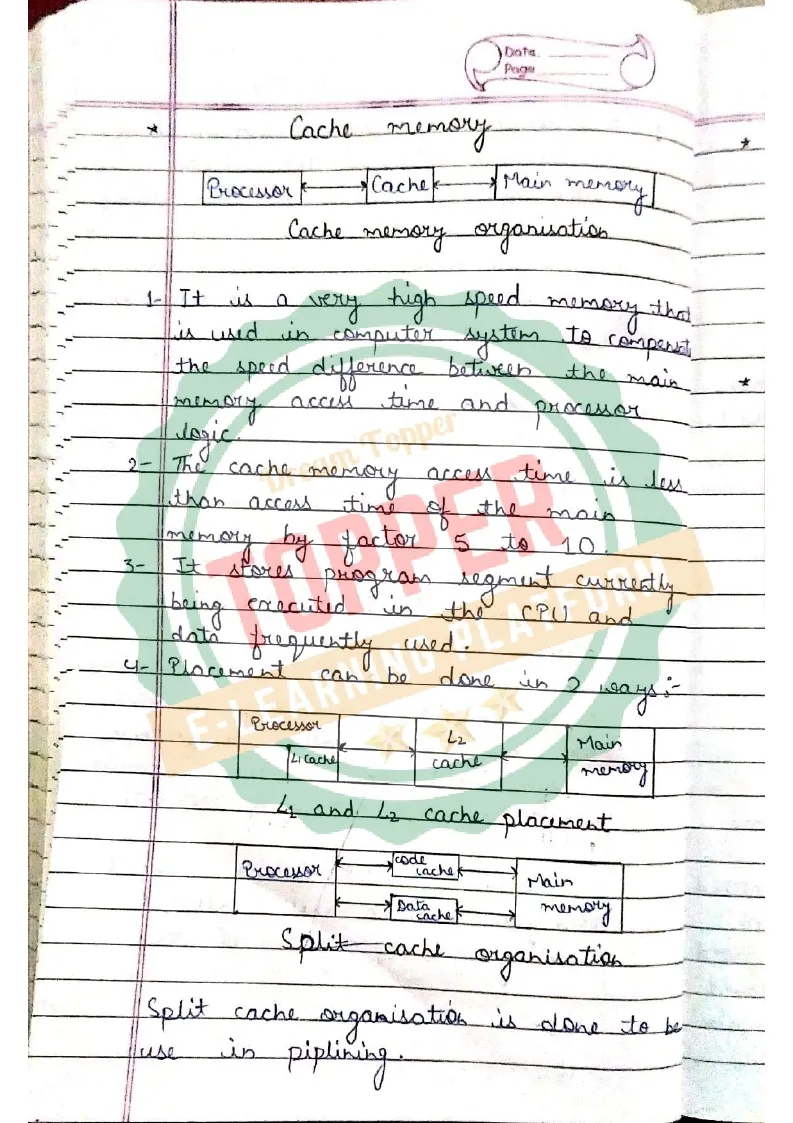 Date
Page
* Cache memory *
Processor Cache Main memory
Cache memory organisation
1- It is a very high speed memory that
is used in computer system to compensat
the speed difference between the main *
memory access time and processor
logic.
Dream Topper
2- The cache memory access time is less
than access time of the main
memory by factor 5 to 10.
TOPPER
3- It stores program segment currently
being executed in the CPU and
data frequently used.
4- Placement can be done in 2 ways:-
E-LEARNING PLATFORM
Processor L2 Main
L1 cache cache memory
L1 and L2 cache placement
Processor code cache Main
Data cache memory
Split cache organisation
Split cache organisation is done to be
use in piplining.